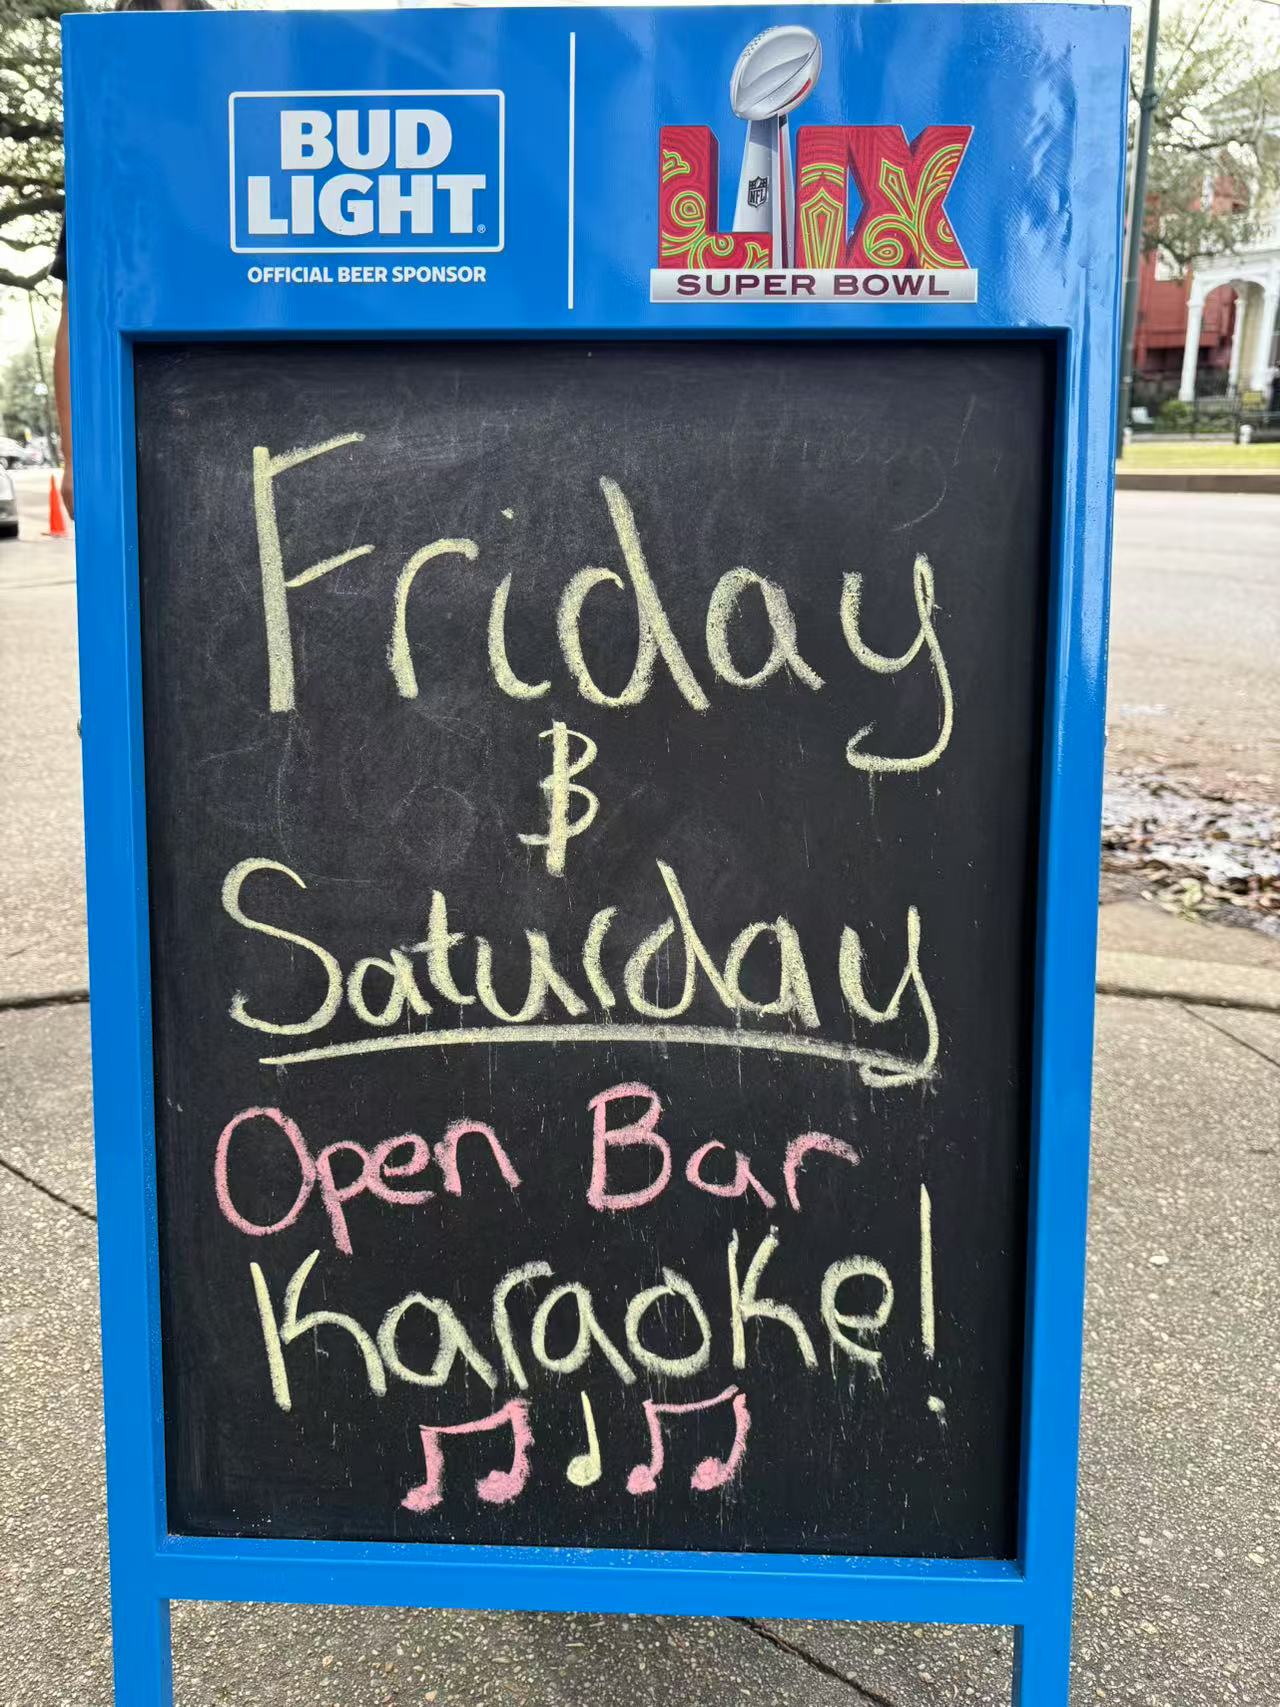 BUD
LIGHT®
OFFICIAL BEER SPONSOR
NFL
LIX
SUPER BOWL
Friday
&
Saturday
Open Bar
Karaoke!